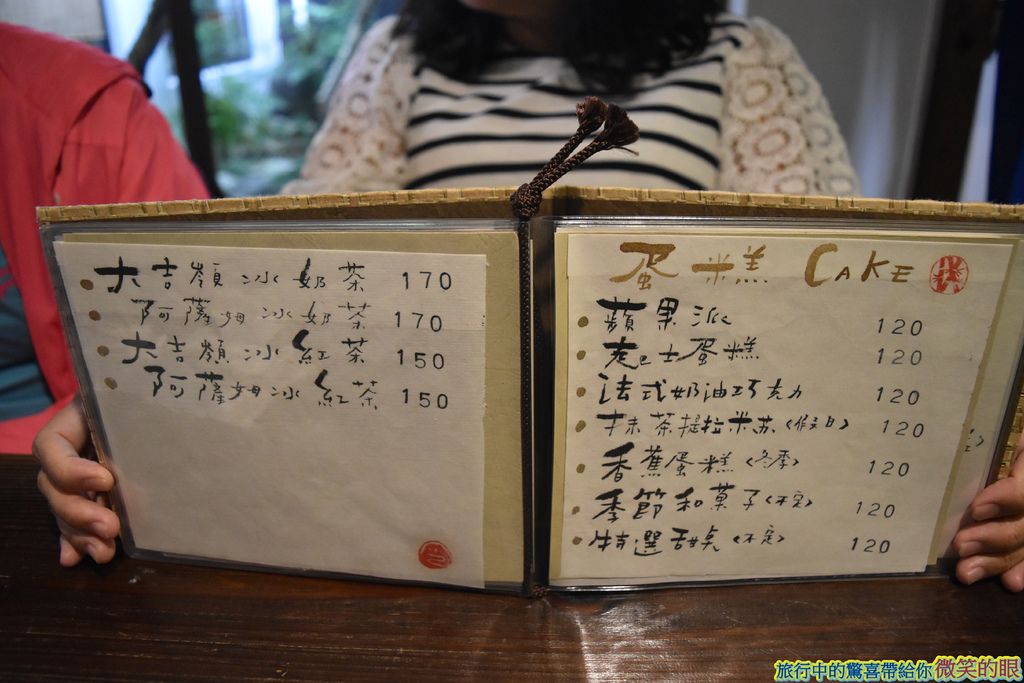 大吉嶺冰奶茶 170
阿薩姆冰奶茶 170
大吉嶺冰紅茶 150
阿薩姆冰紅茶 150
蛋糕 CAKE
蘋果派 120
起士蛋糕 120
法式奶油巧克力 120
抹茶提拉米蘇〈假日〉 120
香蕉蛋糕〈冬季〉 120
季節和菓子〈不定〉 120
特選甜点〈不定〉 120
旅行中的驚喜帶給你微笑的眼